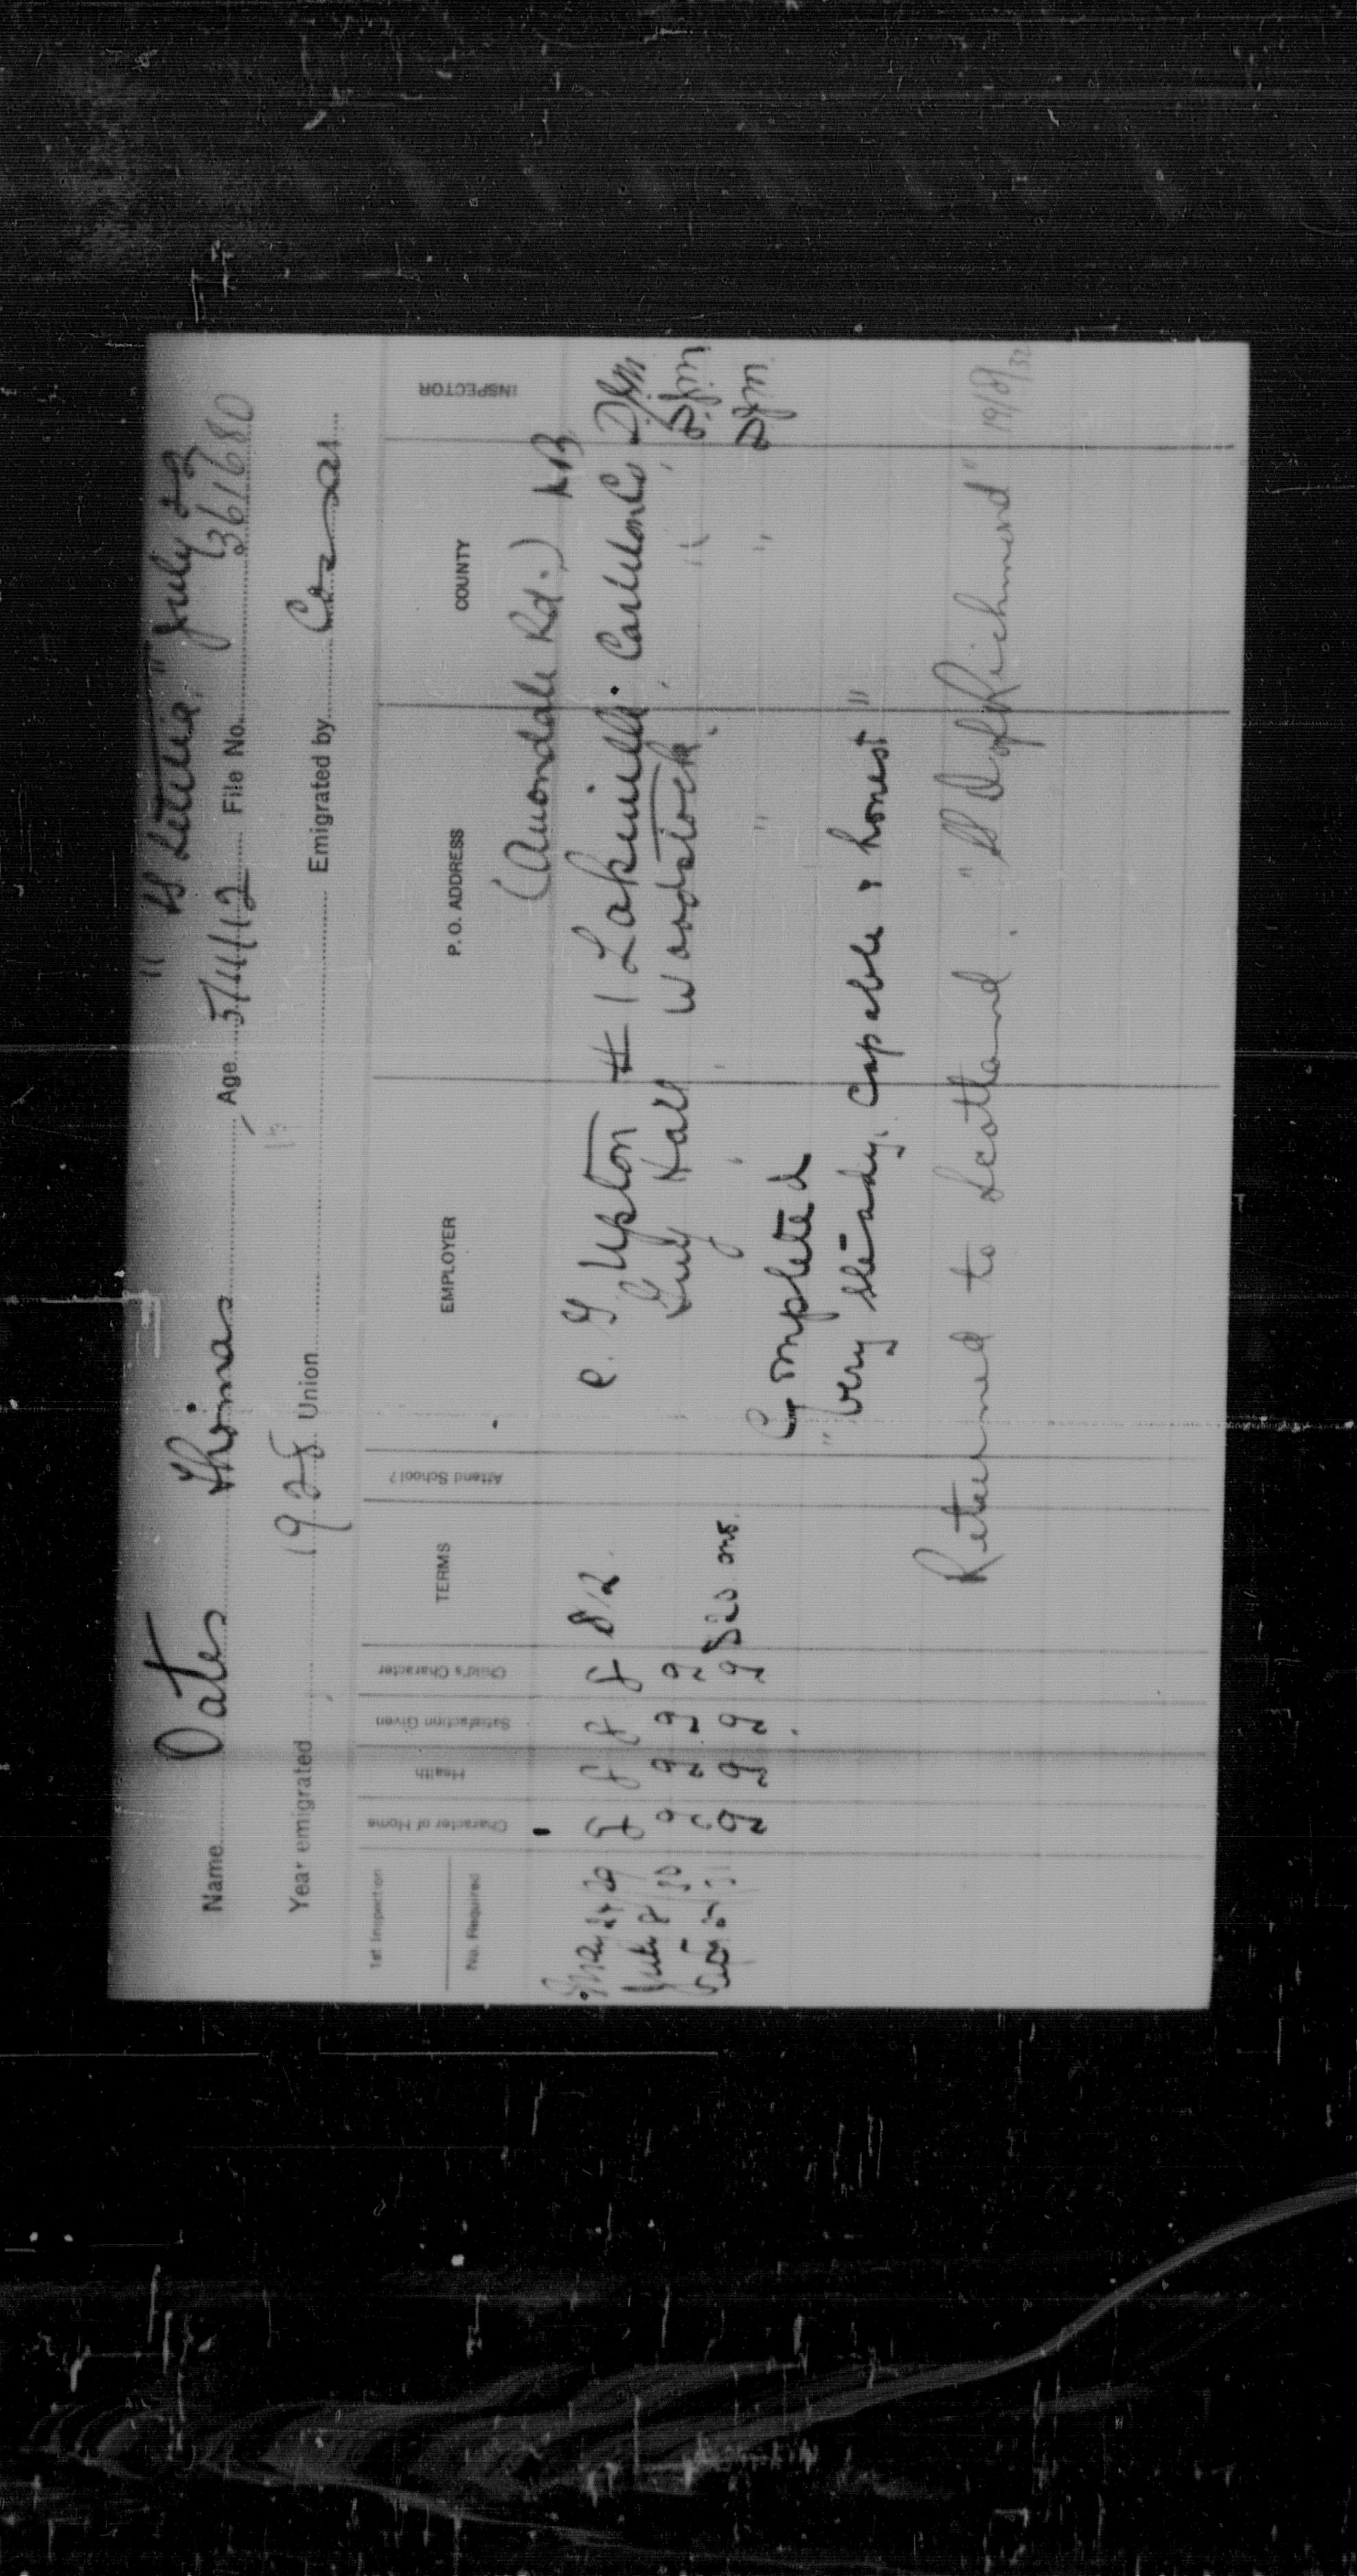 " SS. Letitia. " July 29
Name Oates Thomas Age 5/11/12 File No. 361680
13
Year emigrated 1928 Union Emigrated by
1st Inspection
No. Required
Character of Home Health Satisfaction Given Child's Character TERMS Attend School? EMPLOYER P. O. ADDRESS COUNTY INSPECTOR
(Avondale Rd.) NB
May 24/29 g g g g 812. C. G Upton #1 Lakeville. Carleton Co DJM
July 8/30 g g g g Guy Hall Woodstock. " DJM
Sept 21/31 g g g g $20 " " DJM
Completed
" very steady, capable & honest "
Returned to Scotland. "SS D of Richmond" 19/8/32